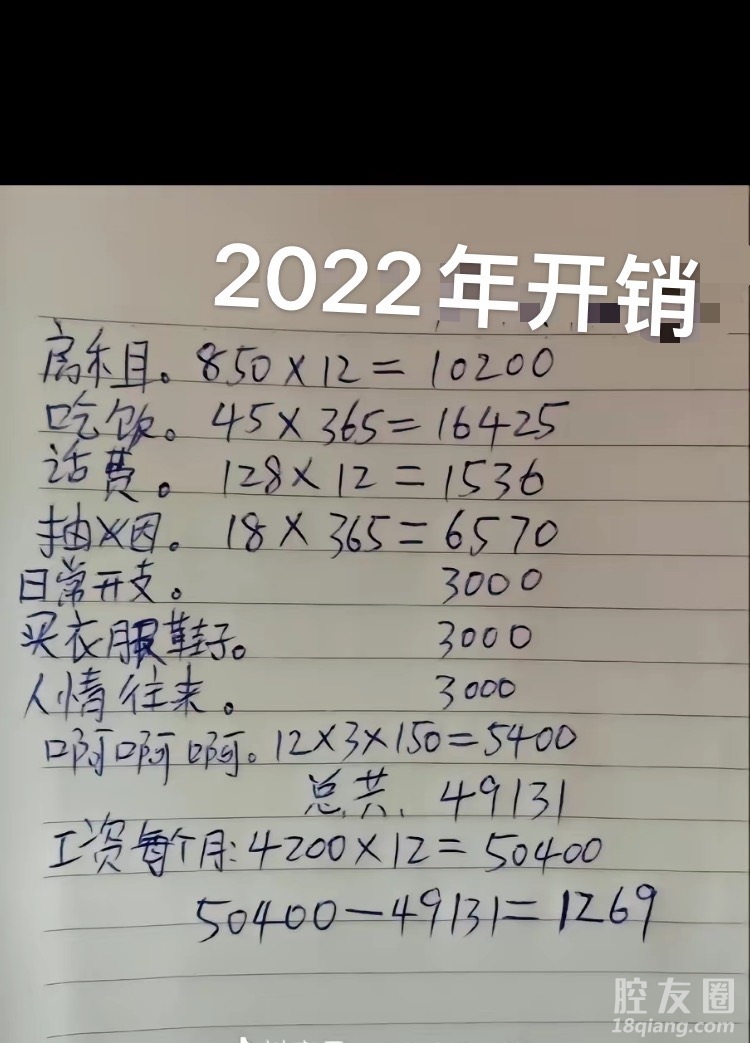 2022年开销
房租。850×12=10200
吃饭。45×365=16425
话费。128×12=1536
抽烟。18×365=6570
日常开支。3000
买衣服鞋子。3000
人情往来。3000
啊啊啊。12×3×150=5400
总共、49131
工资每个月:4200×12=50400
50400-49131=1269
腔友圈
18qiang.com